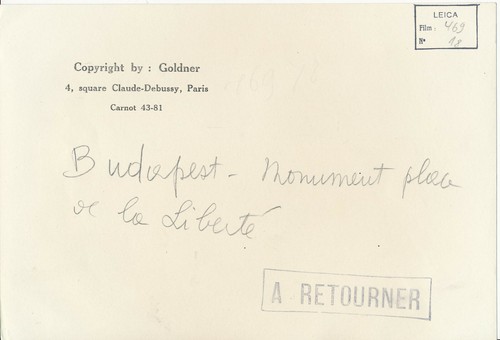 LEICA
Film: 469
N° 18
Copyright by : Goldner
4, square Claude-Debussy, Paris
Carnot 43-81
Budapest - Monument place
de la Liberté
A RETOURNER